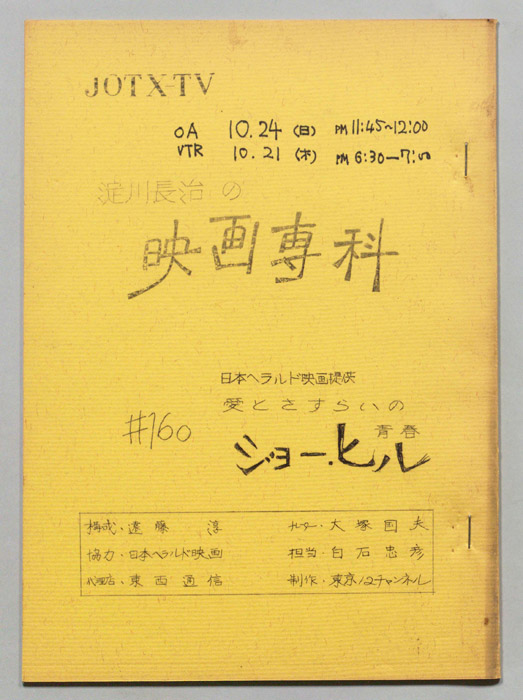 JOTX-TV
OA 10.24 (日) PM 11:45~12:00
VTR 10.21 (木) PM 6:30—7:00
淀川長治の
映画専科
日本ヘラルド映画提供
愛とさすらいの
青春
#160
ジョー・ヒル
構成・遠藤 淳
協力・日本ヘラルド映画
代理店・東西通信
大塚国夫
担当・白石忠彦
制作・東京12チャンネル